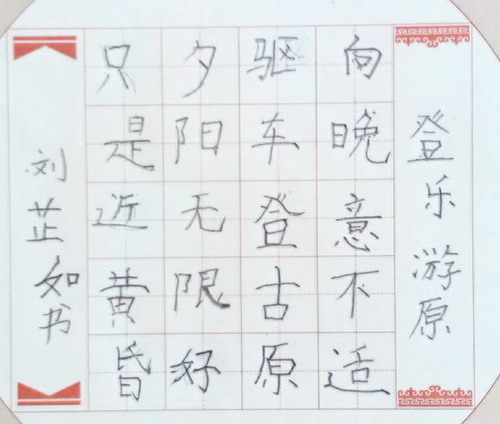 登乐游原
向晚意不适
驱车登古原
夕阳无限好
只是近黄昏
刘芷如书